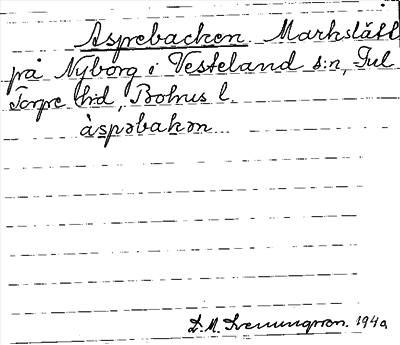 Asprebacken. Markslätt
på Nyborg i Vesteland s:n, Ful
Torpe h:d, Bohus l.
àspəbakən
D.M. Svenungsson. 1940